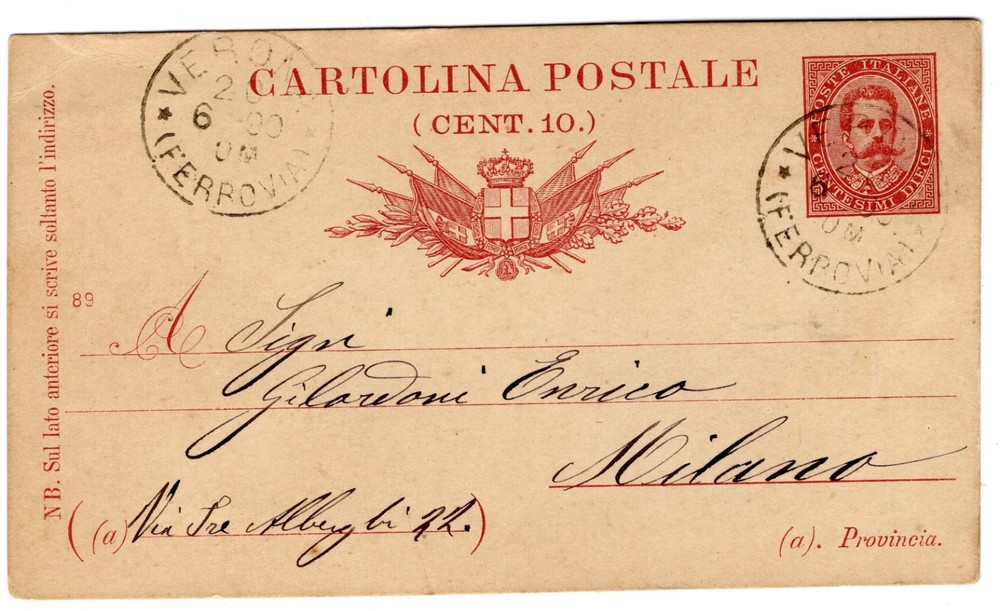 CARTOLINA POSTALE
(CENT. 10.)
POSTE ITALIANE
CENTESIMI DIECI
VERO
2
6 90
0M
(FERROVIA)
6
0M
(FERROVIA)
NB. Sul lato anteriore si scrive soltanto l'indirizzo.
89
A Sigri
Gilardoni Enrico
Milano
(a) Via Tre Alberghi 22.)
(a). Provincia.